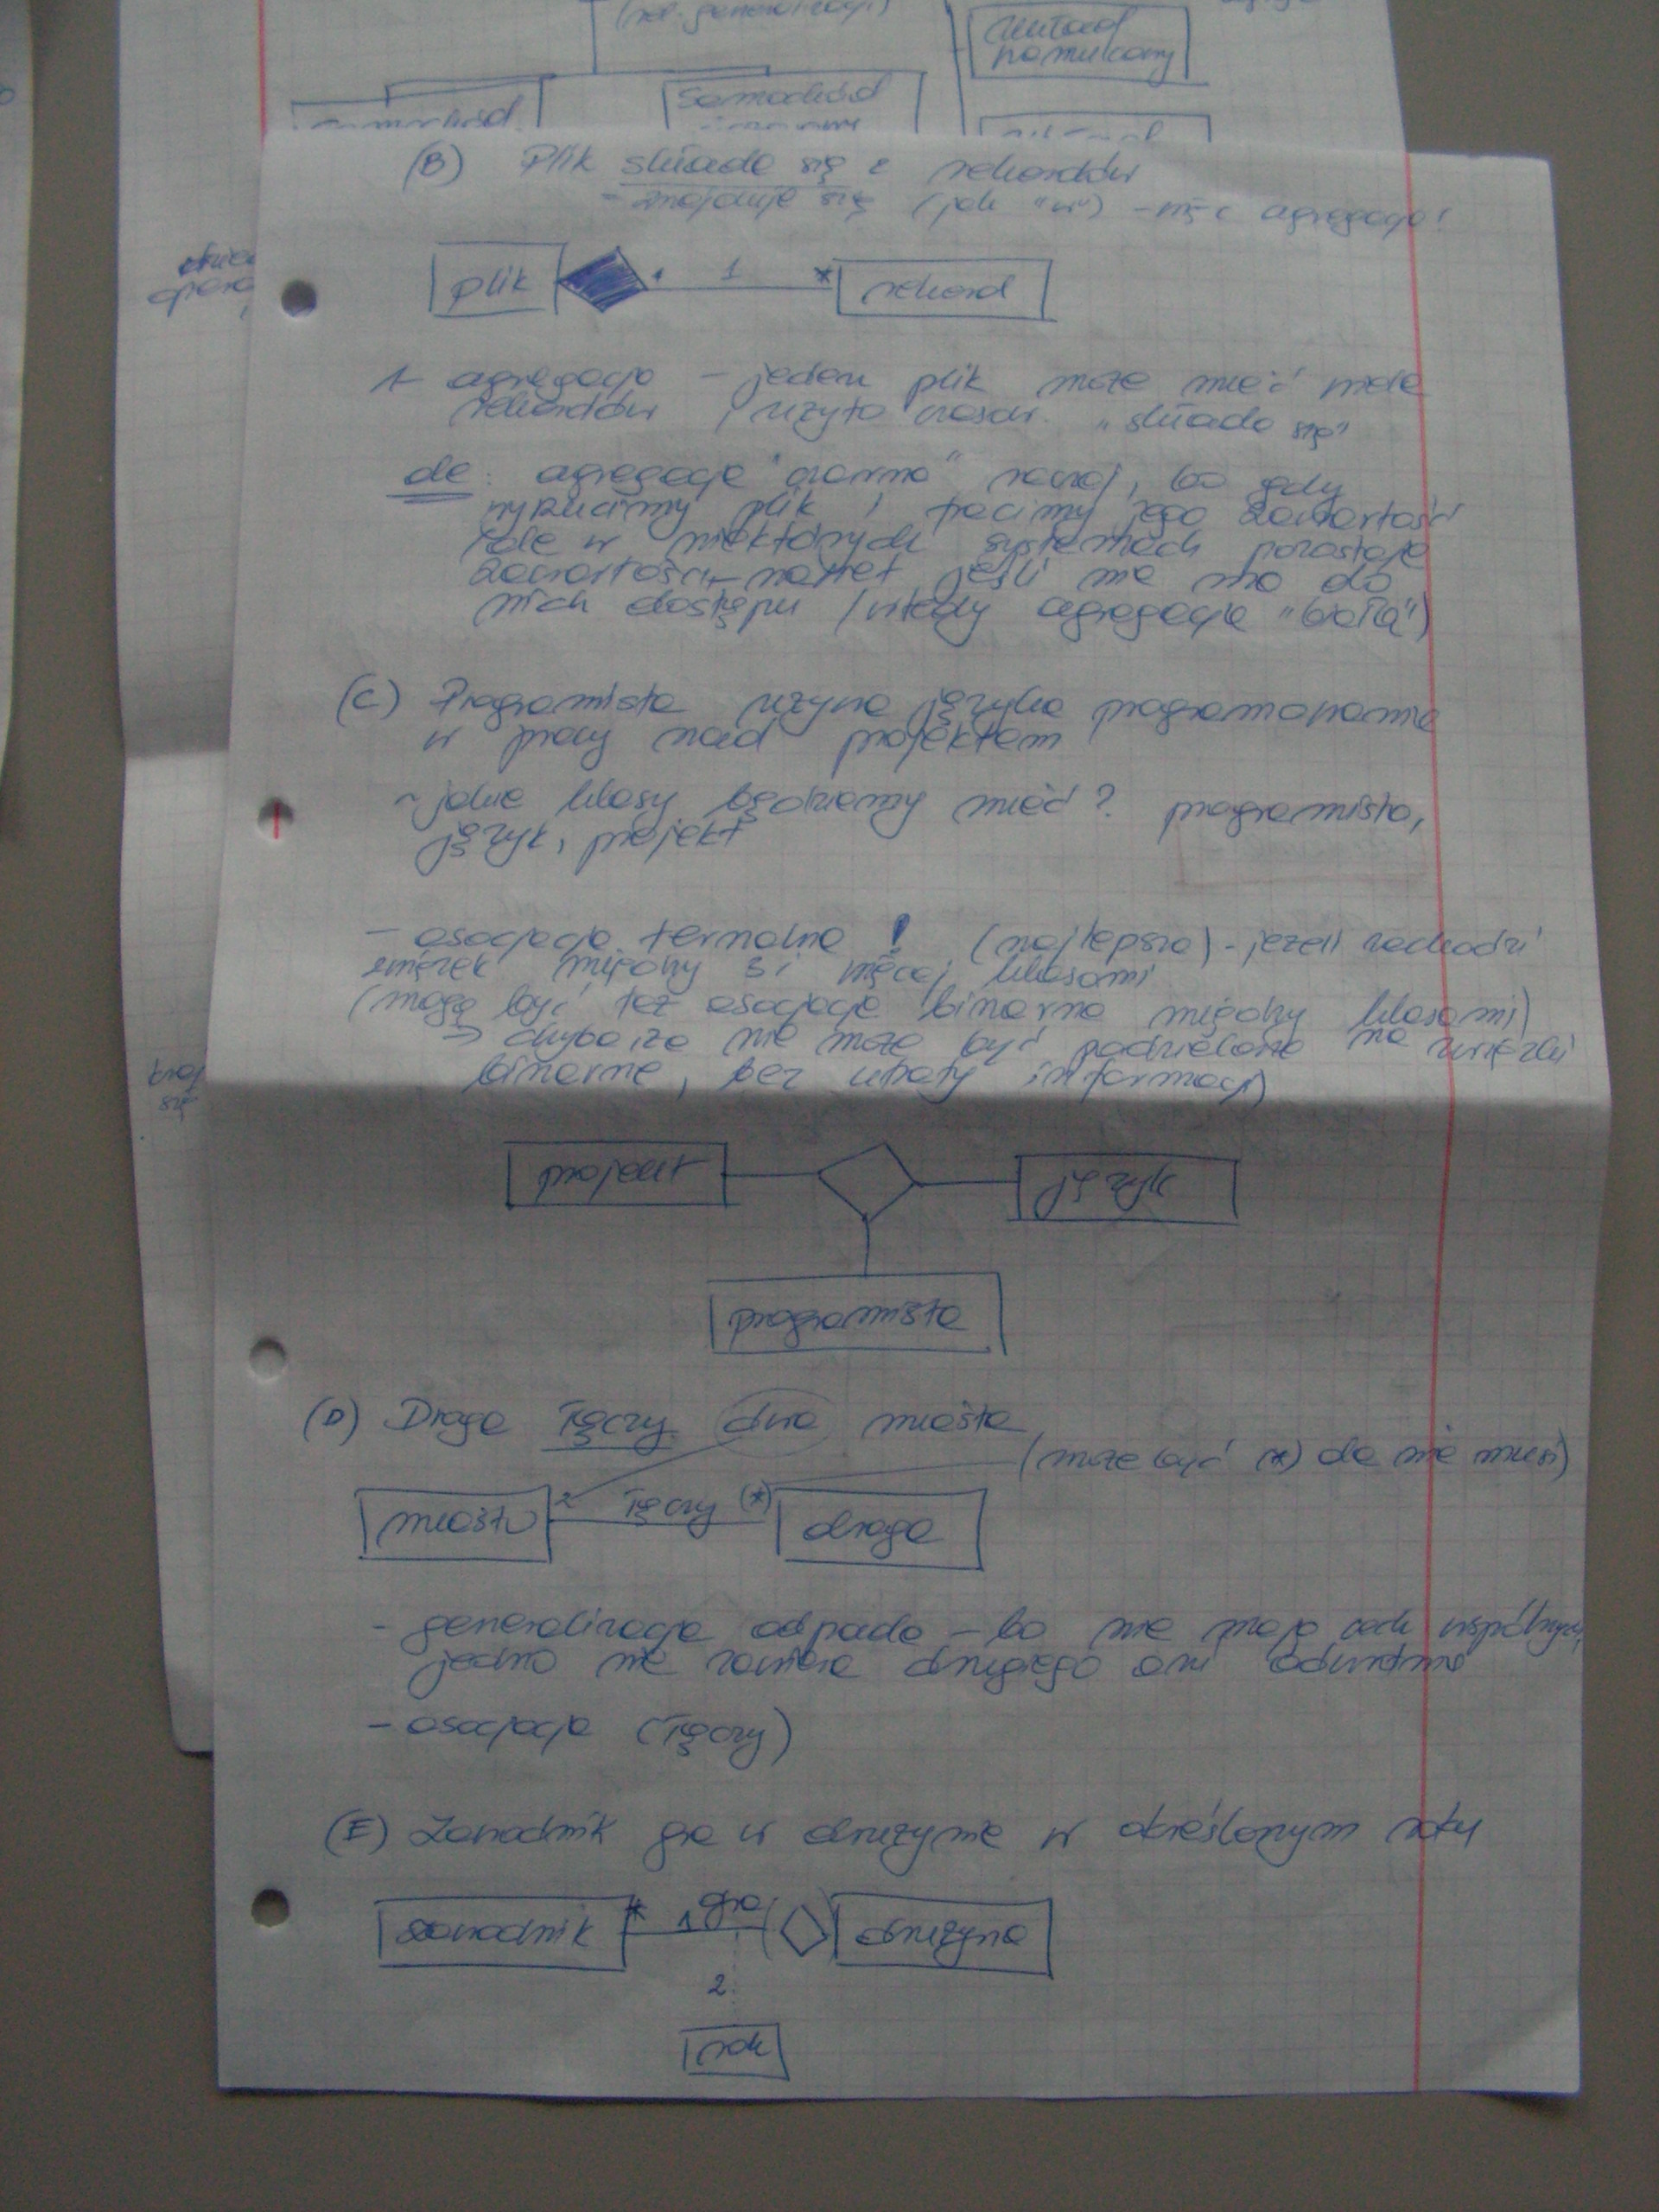 (rel. generalizacji)
układ
hamulcowy
samochód
samochód
(B) Plik składa się z rekordów
- znajduje się (jak "w") - więc agregacja!
plik 1 * rekord
1- agregacja - jeden plik może mieć wiele
rekordów, użyto czasow. "składa się"
ale: agregacja "czarna" raczej, bo gdy
wyrzucimy plik, tracimy jego zawartość
(ale w niektórych systemach pozostaje
zawartość, nawet jeśli nie ma do
nich dostępu (wtedy agregacja "biała")
(C) Programista używa języka programowania
w pracy nad projektem
~ jakie klasy będziemy mieć? programista,
język, projekt
- asocjacja ternalna ! (najlepsza) - jeżeli zachodzi
związek między 3 i więcej klasami
(mogą być też asocjacje binarne między klasami)
⇒ chyba że nie może być podzielone na związki
binarne, bez utraty informacji)
projekt język
programista
(D) Droga łączy dwa miasta
(może być (*) ale nie musi)
miasto 2 łączy (*) droga
- generalizacja odpada - bo nie mają cech wspólnych,
jedno nie zawiera drugiego ani odwrotnie
- asocjacja (łączy)
(E) Zawodnik gra w drużynie w określonym roku
zawodnik * 1 gra drużyna
2
rok